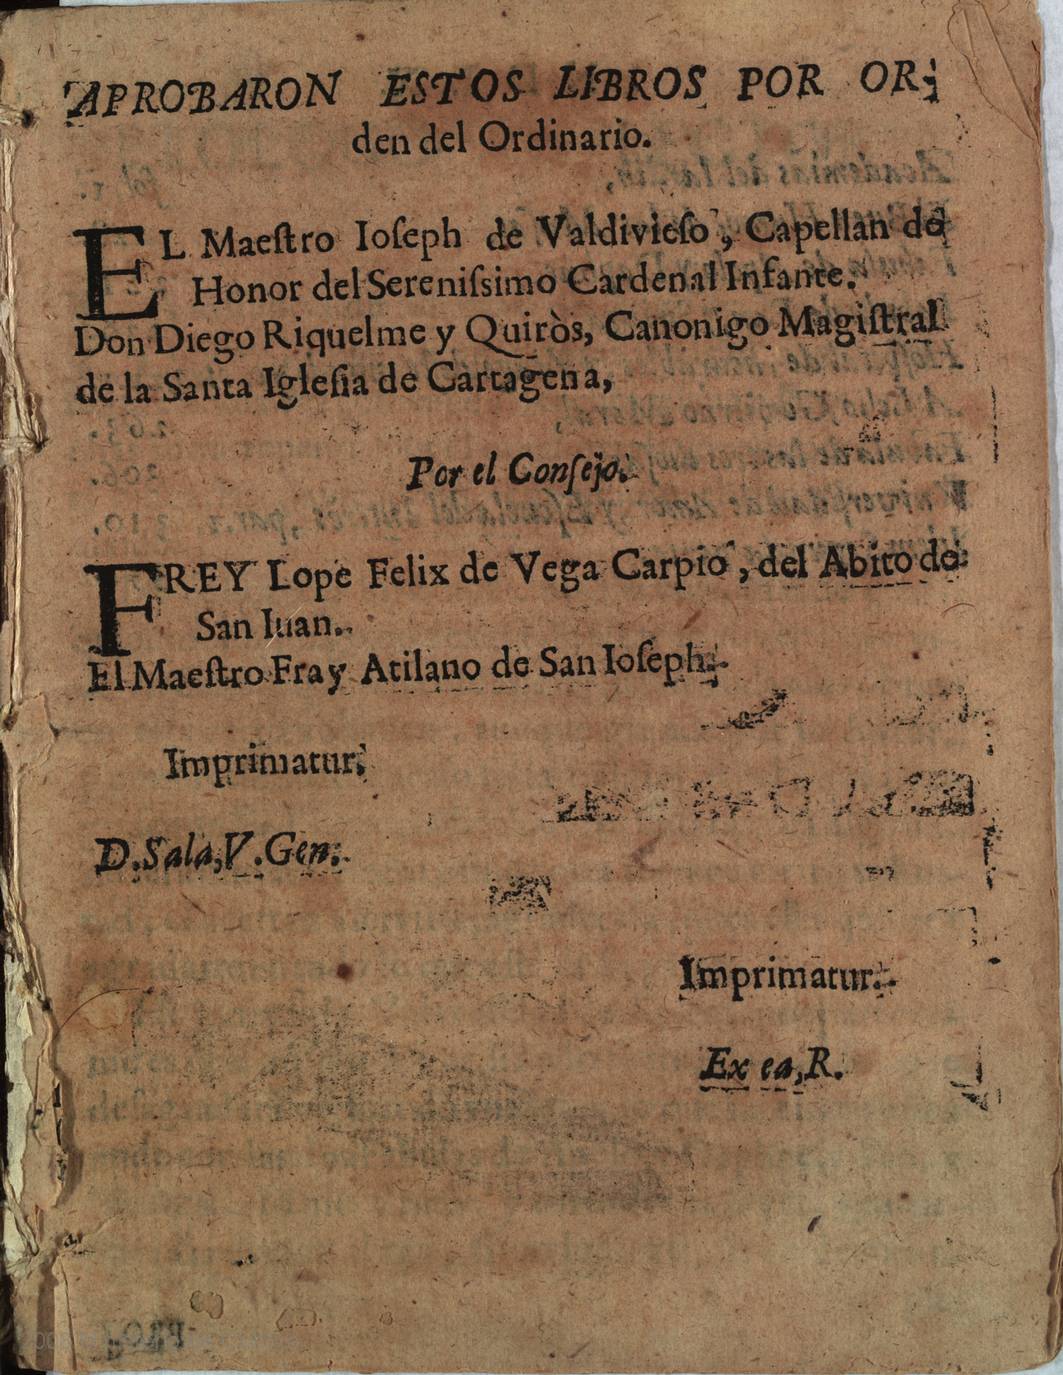 APROBARON ESTOS LIBROS POR OR-
den del Ordinario.
EL Maeſtro Ioſeph de Valdivieſo, Capellan de
Honor del Sereniſsimo Cardenal Infante.
Don Diego Riquelme y Quiròs, Canonigo Magiſtral
de la Santa Igleſia de Cartagena,
Por el Conſejo.
FREY Lope Felix de Vega Carpio, del Abito de
San Iuan.
El Maeſtro Fray Atilano de San Ioſeph.
Imprimatur.
D. Sala, V. Gen.
Imprimatur.
Ex ea, R.